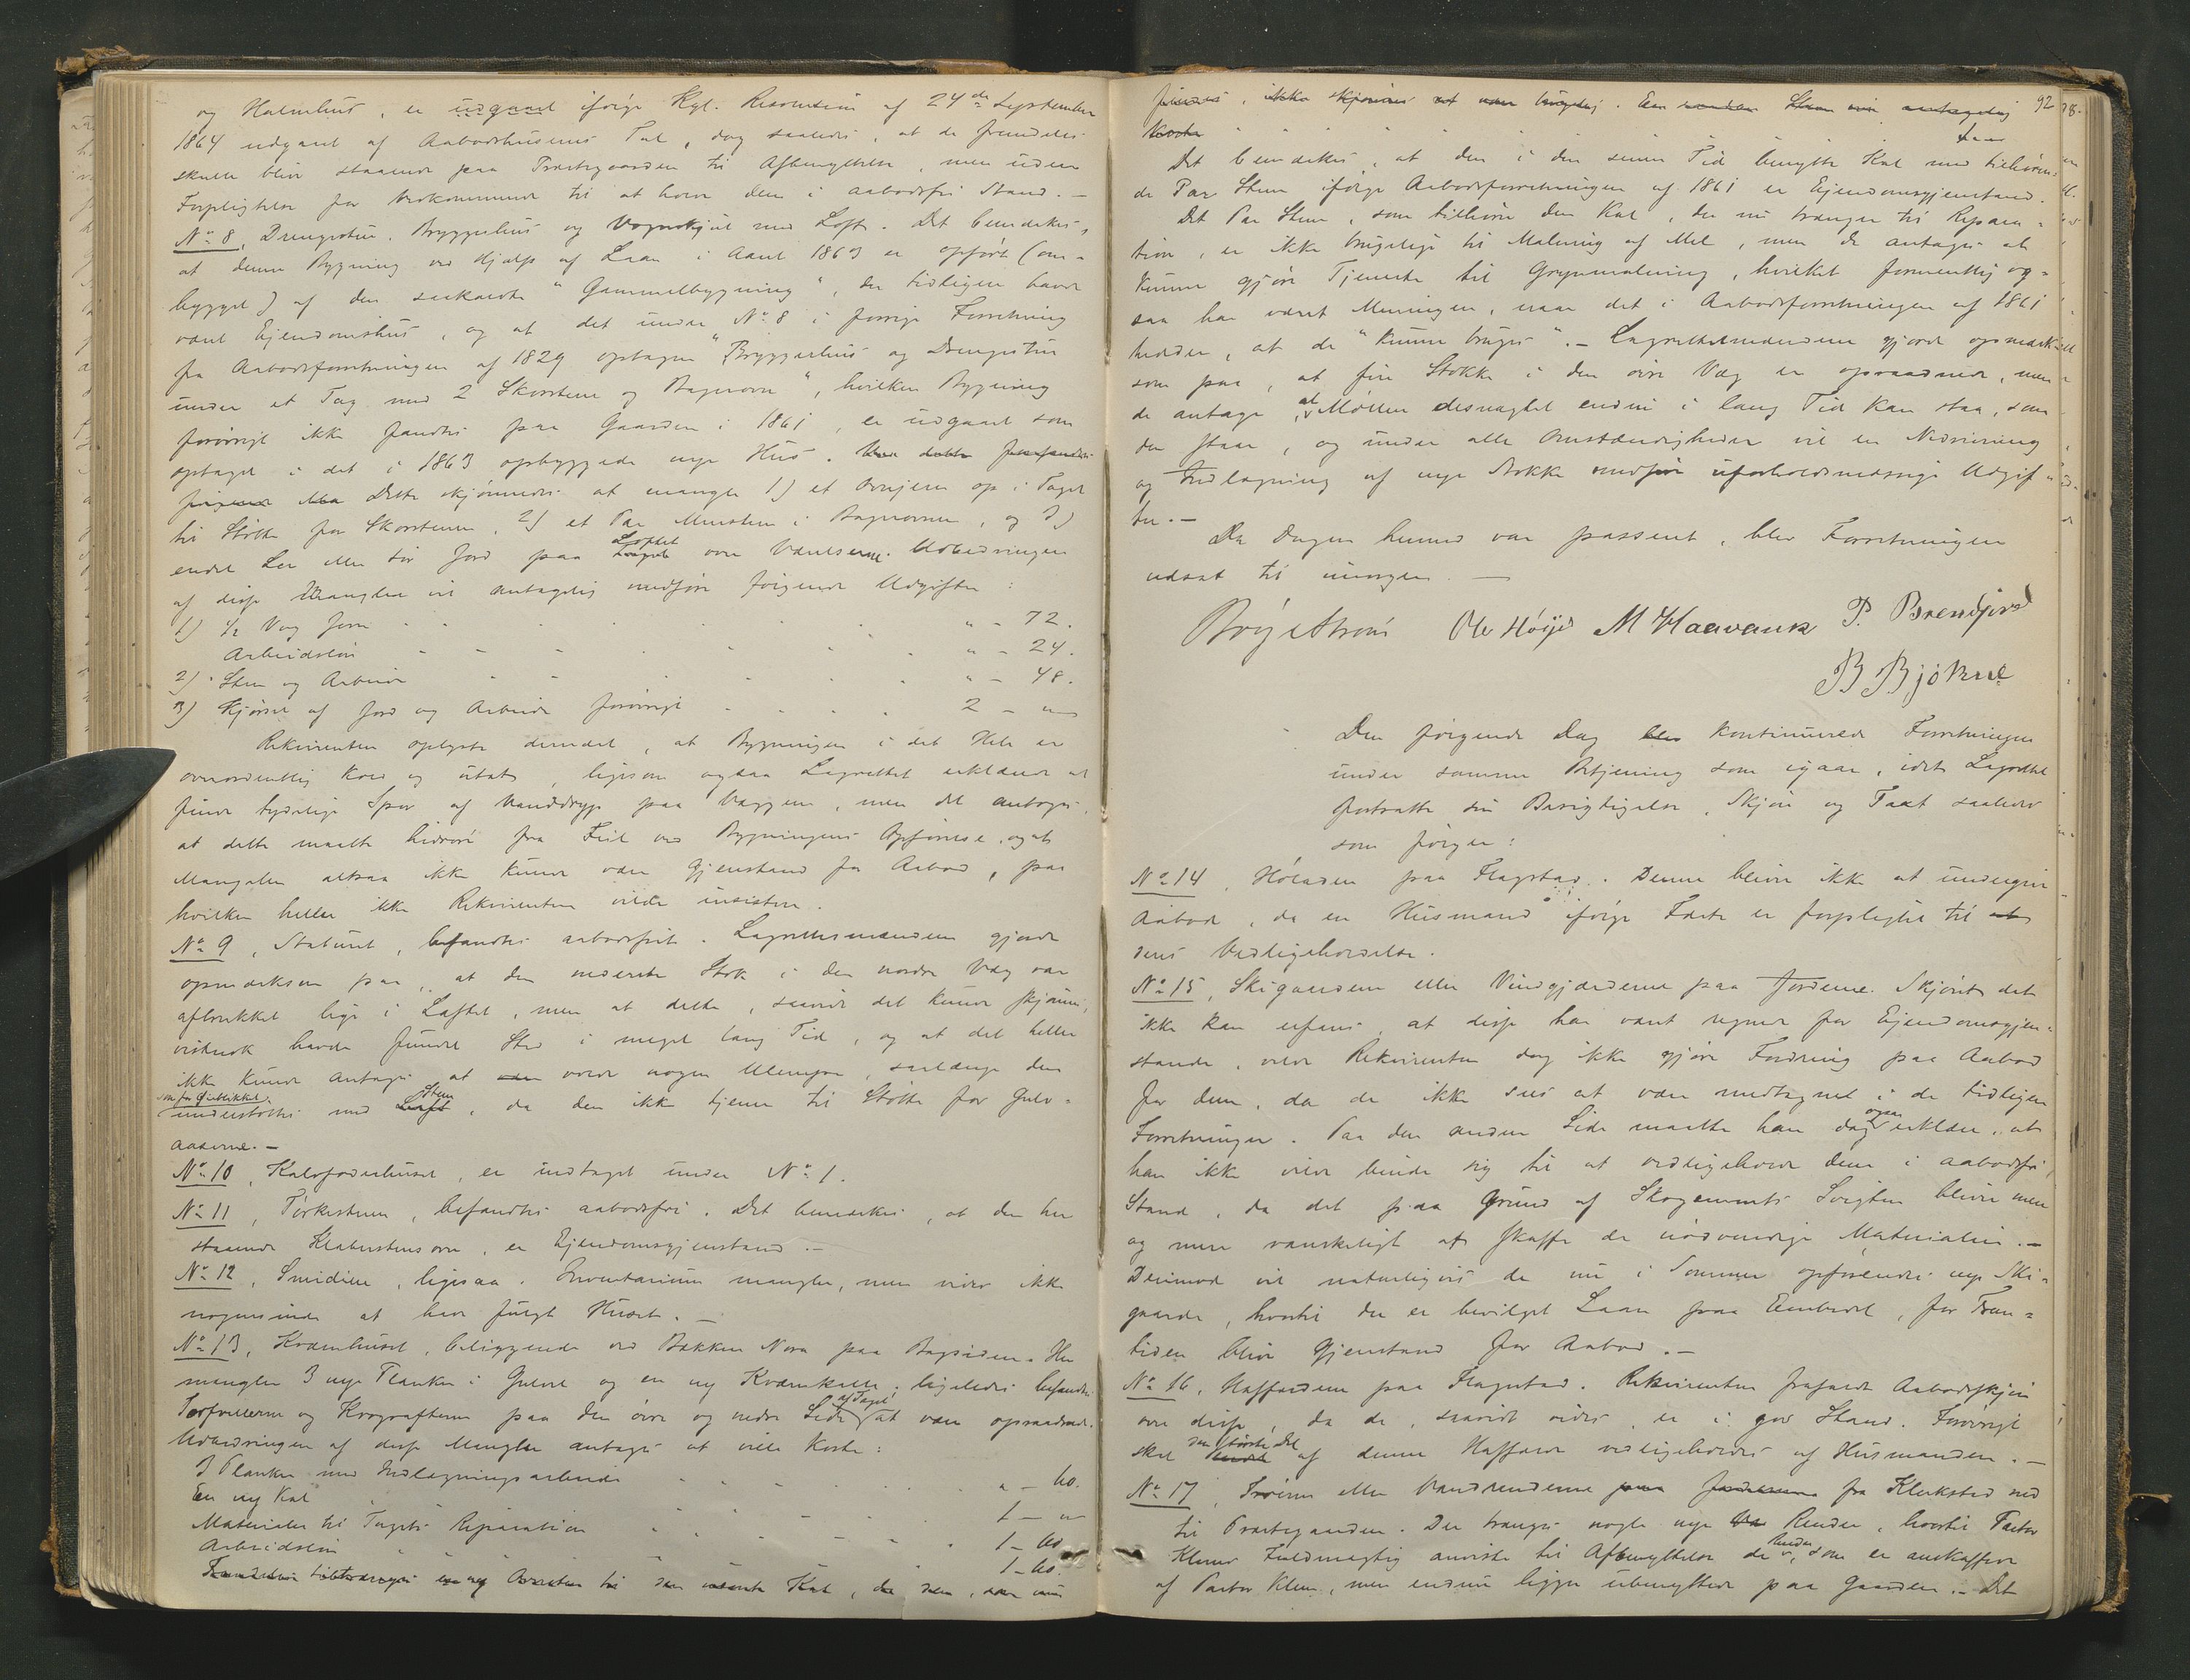 og Halmhus, er udgaaet ifølge Kgl. Resolution af 24de September
1864 udgaaet af Aabodshusenes Tal, dog saaledes, at de fremdeles
skulle blive staaende paa Præstegaarden til Afbenyttelse, men uden
Forpligtelse for Vedkommende til at holde dem i aabodsfri Stand. —
No 8, Drengestue, Bryggerhus og Vognskjul med Loft. Det bemærkes,
at denne Bygning ved Hjælp af Laan i Aaret 1863 er opført (om-
bygget) af den saakaldte "Gammelbygning", der tidligere havde
været Ejendomshus, og at det under No 8 i forrige Forretning
fra Aabodsforretningen af 1829 optagne "Bryggerhus og Drengestue
under et Tag med 2 Skorstene og Bagerovn", hvilken Bygning
forøvrigt ikke fandtes paa Gaarden i 1861, er udgaaet som
optaget i det i 1863 opbyggede nye Hus. Ved dette
Dette skjønnedes at mangle 1) et Ovnjern op i Taget
til Støtte for Skorstenen, 2) et Par Mursten i Bagerovnen, og 3)
endel Ler eller tør Jord paa Loftet over Værelserne. Udbedringen
af disse Mangler vil antagelig medføre følgende Udgifter:
1) ½ Vog Jern " - 72.
Arbeidsløn " - 24.
2) Sten og Arbeide " - 48.
3) Kjørsel af Jord og Arbeide forøvrigt 2 - "
Rekvirenten oplyste derndæst, at Bygningen i det Hele er
overordentlig kold og utæt, ligesom ogsaa Lagrettet erklærede at
finde tydelige Spor af Vanddryp paa Væggene, men det antoges,
at dette maatte hidrøre fra Feil ved Bygningens Opførelse, og at
Mangelen altsaa ikke kunde være Gjenstand for Aabod, paa
hvilken heller ikke Rekvirenten vilde insistere.
No 9, Staburet, befandtes aabodsfrit. Lagrettesmændene gjorde
opmærksom paa, at den nederste Stok i den nordre Væg var
afbrukket lige i Laftet, men at dette, saavidt det kunde skjønnes,
vistnok havde fundet Sted i meget lang Tid, og at det heller
ikke kunde antages at volde nogen Ulempe, saalænge den
som for Øieblikket
understøttes med Sten, da den ikke tjener til Støtte for Gulv-
aaserne. —
No 10, Kalvefoderhuset, er indtaget under No 1.
No 11, Tørkestuen, befandtes aabodsfri. Det bemærkes, at den her
staaende Klæberstensovn, er Ejendomsgjenstand. —
No 12, Smidien, ligesaa. Inventarium mangler, men vides ikke
nogensinde at have fulgt Huset. —
No 13, Kværnhuset, beliggende ved Bækken Nora paa Bagsiden. Her
mangler 3 nye Planker i Gulvet og en ny Kværnkall; ligeledes befandtes
Torfvollerne og Krografterne paa den øvre og nedre Side af Taget at være opraadnede.
Udbedringen af disse Mangler antages at ville koste:
3 Planker med Indlægningsarbeide " - 60.
En ny Kal 1 - "
Materialer til Tagets Reparation 1 - 60
Arbeidsløn 1 - 60.

92
Det bemærkes, at den i den senere Tid benyttede Kal med tilhøren-
de Par Stene ifølge Aabodsforretningen af 1861 er Ejendomsgjenstand.
Det Par Stene, som tilhøre den Kal, der nu trænger til Repara-
tion, er ikke brugelige til Maling af Mel, men de antages at
kunne gjøre Tjeneste til Grynmaling, hvilket formentlig og-
saa har været Meningen, naar det i Aabodsforretningen af 1861
hedder, at de "kunne bruges". — Lagrettesmændene gjorde opmærk-
som paa, at fire Stokke i den øvre Væg er opraadnede, men
de antage at Møllen desuagtet endnu i lang Tid kan staa, som
den staar, og under alle Omstændigheder vil en Nedrivning
og Indlægning af nye Stokke medføre uforholdsmæssige Udgif-
ter. —
Da Dagen hermed var passeret, blev Forretningen
udsat til imorgen. —
Bøye Strøm Ole Høyer M Haavank P. Brendfjord
B Bjökne
Den følgende Dag kontinuerede Forretningen
under samme Betjening som igaar, idet Lagrettet
fortsatte sin Besigtigelse, Skjøn og Taxt saaledes
som følger:
No 14, Høladen paa Flagstad. Denne bliver ikke at undergive
Aabod, da en Husmand ifølge Fæste er forpligtet til
dens Vedligeholdelse.
No 15, Skigardene eller Vindgjærderne paa Jorderne. Skjønt det
ikke kan erfares, at disse har været regnet for Ejendomsgjen-
stande, vilde Rekvirenten dog ikke gjøre Fordring paa Aabod
for dem, da de ikke sees at være medtagne i de tidligere
Forretninger. Paa den anden Side maatte han dog ogsaa erklære, at
han ikke vilde binde sig til at vedligeholde dem i aabodsfri
Stand, da det paa Grund af Skogemnets Svigten bliver mere
og mere vanskeligt at skaffe de nødvendige Materialier. —
Derimod vil naturligvis de nu i Sommer opførendes nye Ski-
gaarde, hvortil der er bevilget Laan paa Embedet, for Frem-
tiden blive Gjenstand for Aabod. —
No 16, Hafferdene paa Flagstad. Rekvirenten frafaldt Aabodsskjøn
over disse, da de, saavidt vides, er i god Stand. Forøvrigt
skal den største Del af denne Hafferd vedligeholdes af Husmanden. —
No 17, Trøerne eller Vandrenderne fra Klerkstad ned
til Præstegaarden. Der trænges nogle nye Render, hvortil Pastor
Klems Fuldmægtig anviste til Afbenyttelse de Render, som er anskaffede
af Pastor Klem, men endnu ligge ubenyttede paa Gaarden. — Det